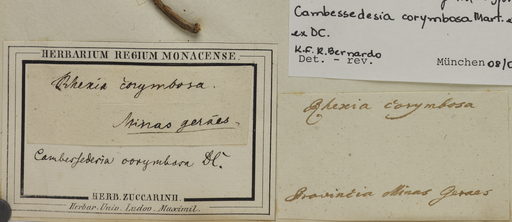 HERBARIUM REGIUM MONACENSE.
Rhexia corymbosa.
Minas geräes.
Cambessedesia corymbosa DC.
HERB. ZUCCARINII.
Herbar. Univ. Ludov. Maximil.
Cambessedesia corymbosa Mart.
ex DC.
K.F.R. Bernardo
Det. - rev.
München 08/0
Rhexia corymbosa
Provintia Minas Geraes